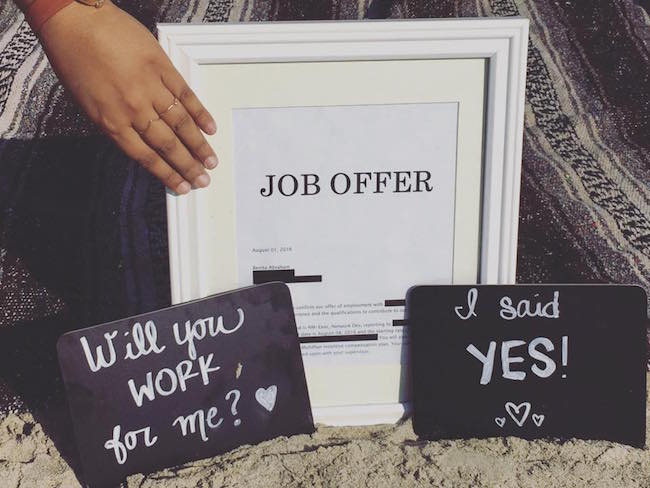 JOB OFFER
August 01, 2016
Benita Abraham
confirm our offer of employment with
and the qualifications to contribute to
Network Dev, reporting to
date is August 08, 2016 and the starting
You will
incentive compensation plan. Your
upon with your supervisor.
Will you
WORK
for me?
I said
YES!